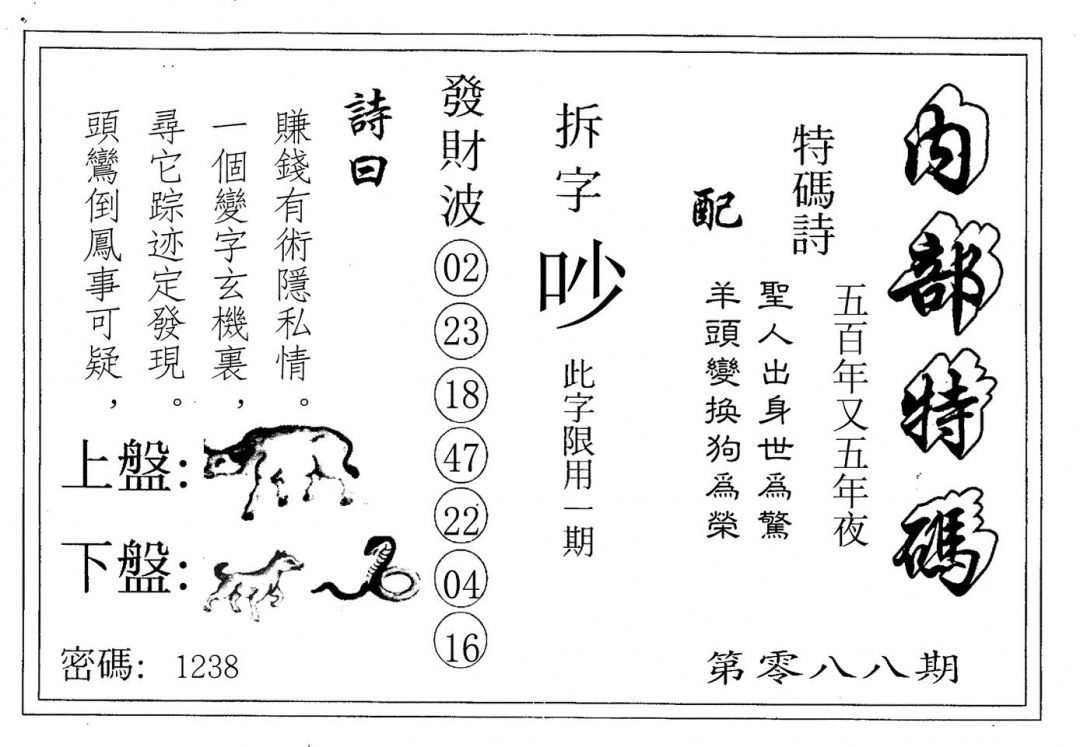 內部特碼
第零八八期
特碼詩
五百年又五年夜
配
聖人出身世爲驚
羊頭變換狗爲榮
拆字
吵
此字限用一期
發財波
02
23
18
47
22
04
16
詩曰
賺錢有術隱私情。
一個變字玄機裏，
尋它踪迹定發現。
頭鸞倒鳳事可疑，
上盤：
下盤：
密碼： 1238